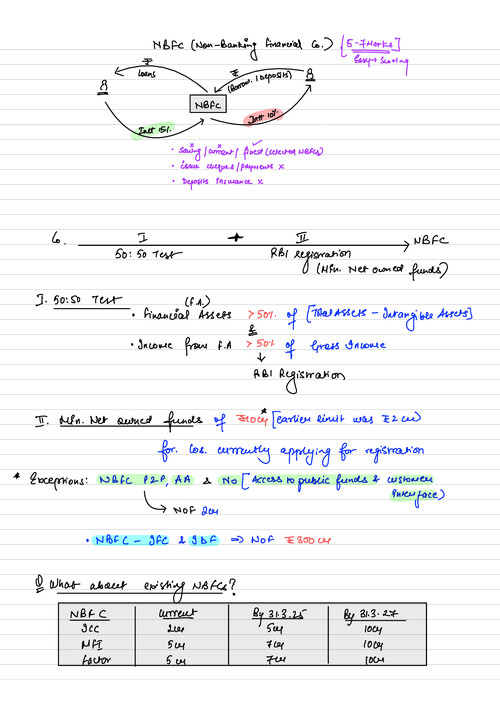 NBFC (Non-Banking Financial Co.) [5-7 Marks]
Easy + Scoring
₹
loans
₹
(Borrow. / Deposits)
NBFC
Intt 15%
Intt 10%
• Saving / Current / fixed (selected NBFCs)
x x ✓
• issue cheques / payments x
• Deposits Insurance x
Co. I + II → NBFC
50:50 Test RBI registration
(Mn. Net owned funds)
I. 50:50 Test (F.A.)
• Financial Assets >50% of [Total Assets - Intangible Assets]
&
• Income from F.A >50% of Gross Income
↓
RBI Registration
II. Mn. Net owned funds of ₹10cr* [earlier limit was ₹2cr]
for Cos. currently applying for registration
* Exceptions: NBFC P2P, AA & No [Access to public funds & customer
interface)
→ NOF 2cr
• NBFC - IFC & IDF ⇒ NOF ₹300cr
Q What about existing NBFCs?
NBFC Current By 31.3.25 By 31.3.27
ICC 2cr 5cr 10cr
MFI 5cr 7cr 10cr
Factor 5cr 7cr 10cr